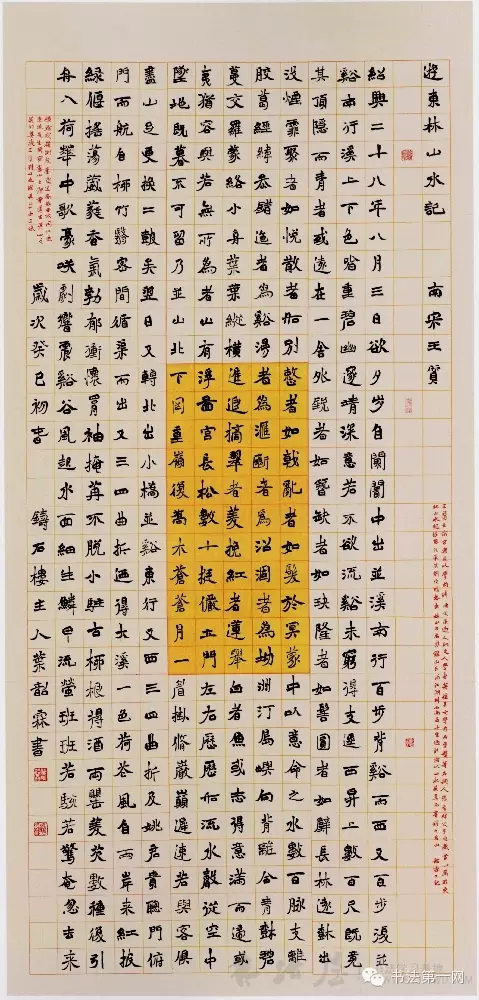 遊東林山水記　南宋王質
紹興二十八年八月三日欲夕步自闤闠中出並溪南行百步背谿而西又百步復並
谿南行溪上下色皆重碧幽邃靖深意若不欲流谿未窮得支逕西昇上數百尺既竟
其頂隱而青者或遠在一舍外銳者如簪缺者如玦隆者如髻圓者如璧長林遠樹出
没煙霏聚者如悅散者如別整者如戟亂者如髮於冥蒙中以意命之水數百脉支離
膠葛經緯參錯迤者為谿漫者為滙斷者為沼涸者為坳洲汀島嶼向背離合青樹碧
蔓交羅蒙絡小舟葉葉縱橫進退摘翠者菱挽紅者蓮舉白者魚或志得意滿而返或
夷猶容與若無所為者山有浮圖宮長松數十挺儼立門左右歷歷如流水聲從空中
墜也既暮不可留乃並山北下岡重嶺復喬木蒼蒼月一眉掛修巖巔遲速若與客俱
盡山足更換二鼓矣翌日又轉北出小橋並谿東行又西三四曲折及姚君貴聰門俯
門而航自柳竹翳密間循渠而出又三四曲折乃得大溪一色荷花風自兩岸來紅披
綠偃搖蕩葳蕤香氣勃郁衝懷罥袖掩苒不脫小駐古柳根得酒兩罌菱芡數種復引
舟入荷華中歌豪笑劇響震谿谷風起水面細生鱗甲流螢班班若駭若驚奄忽去來
歲次癸巳初春　鑄石樓主人葉韶霖書
书法第一网